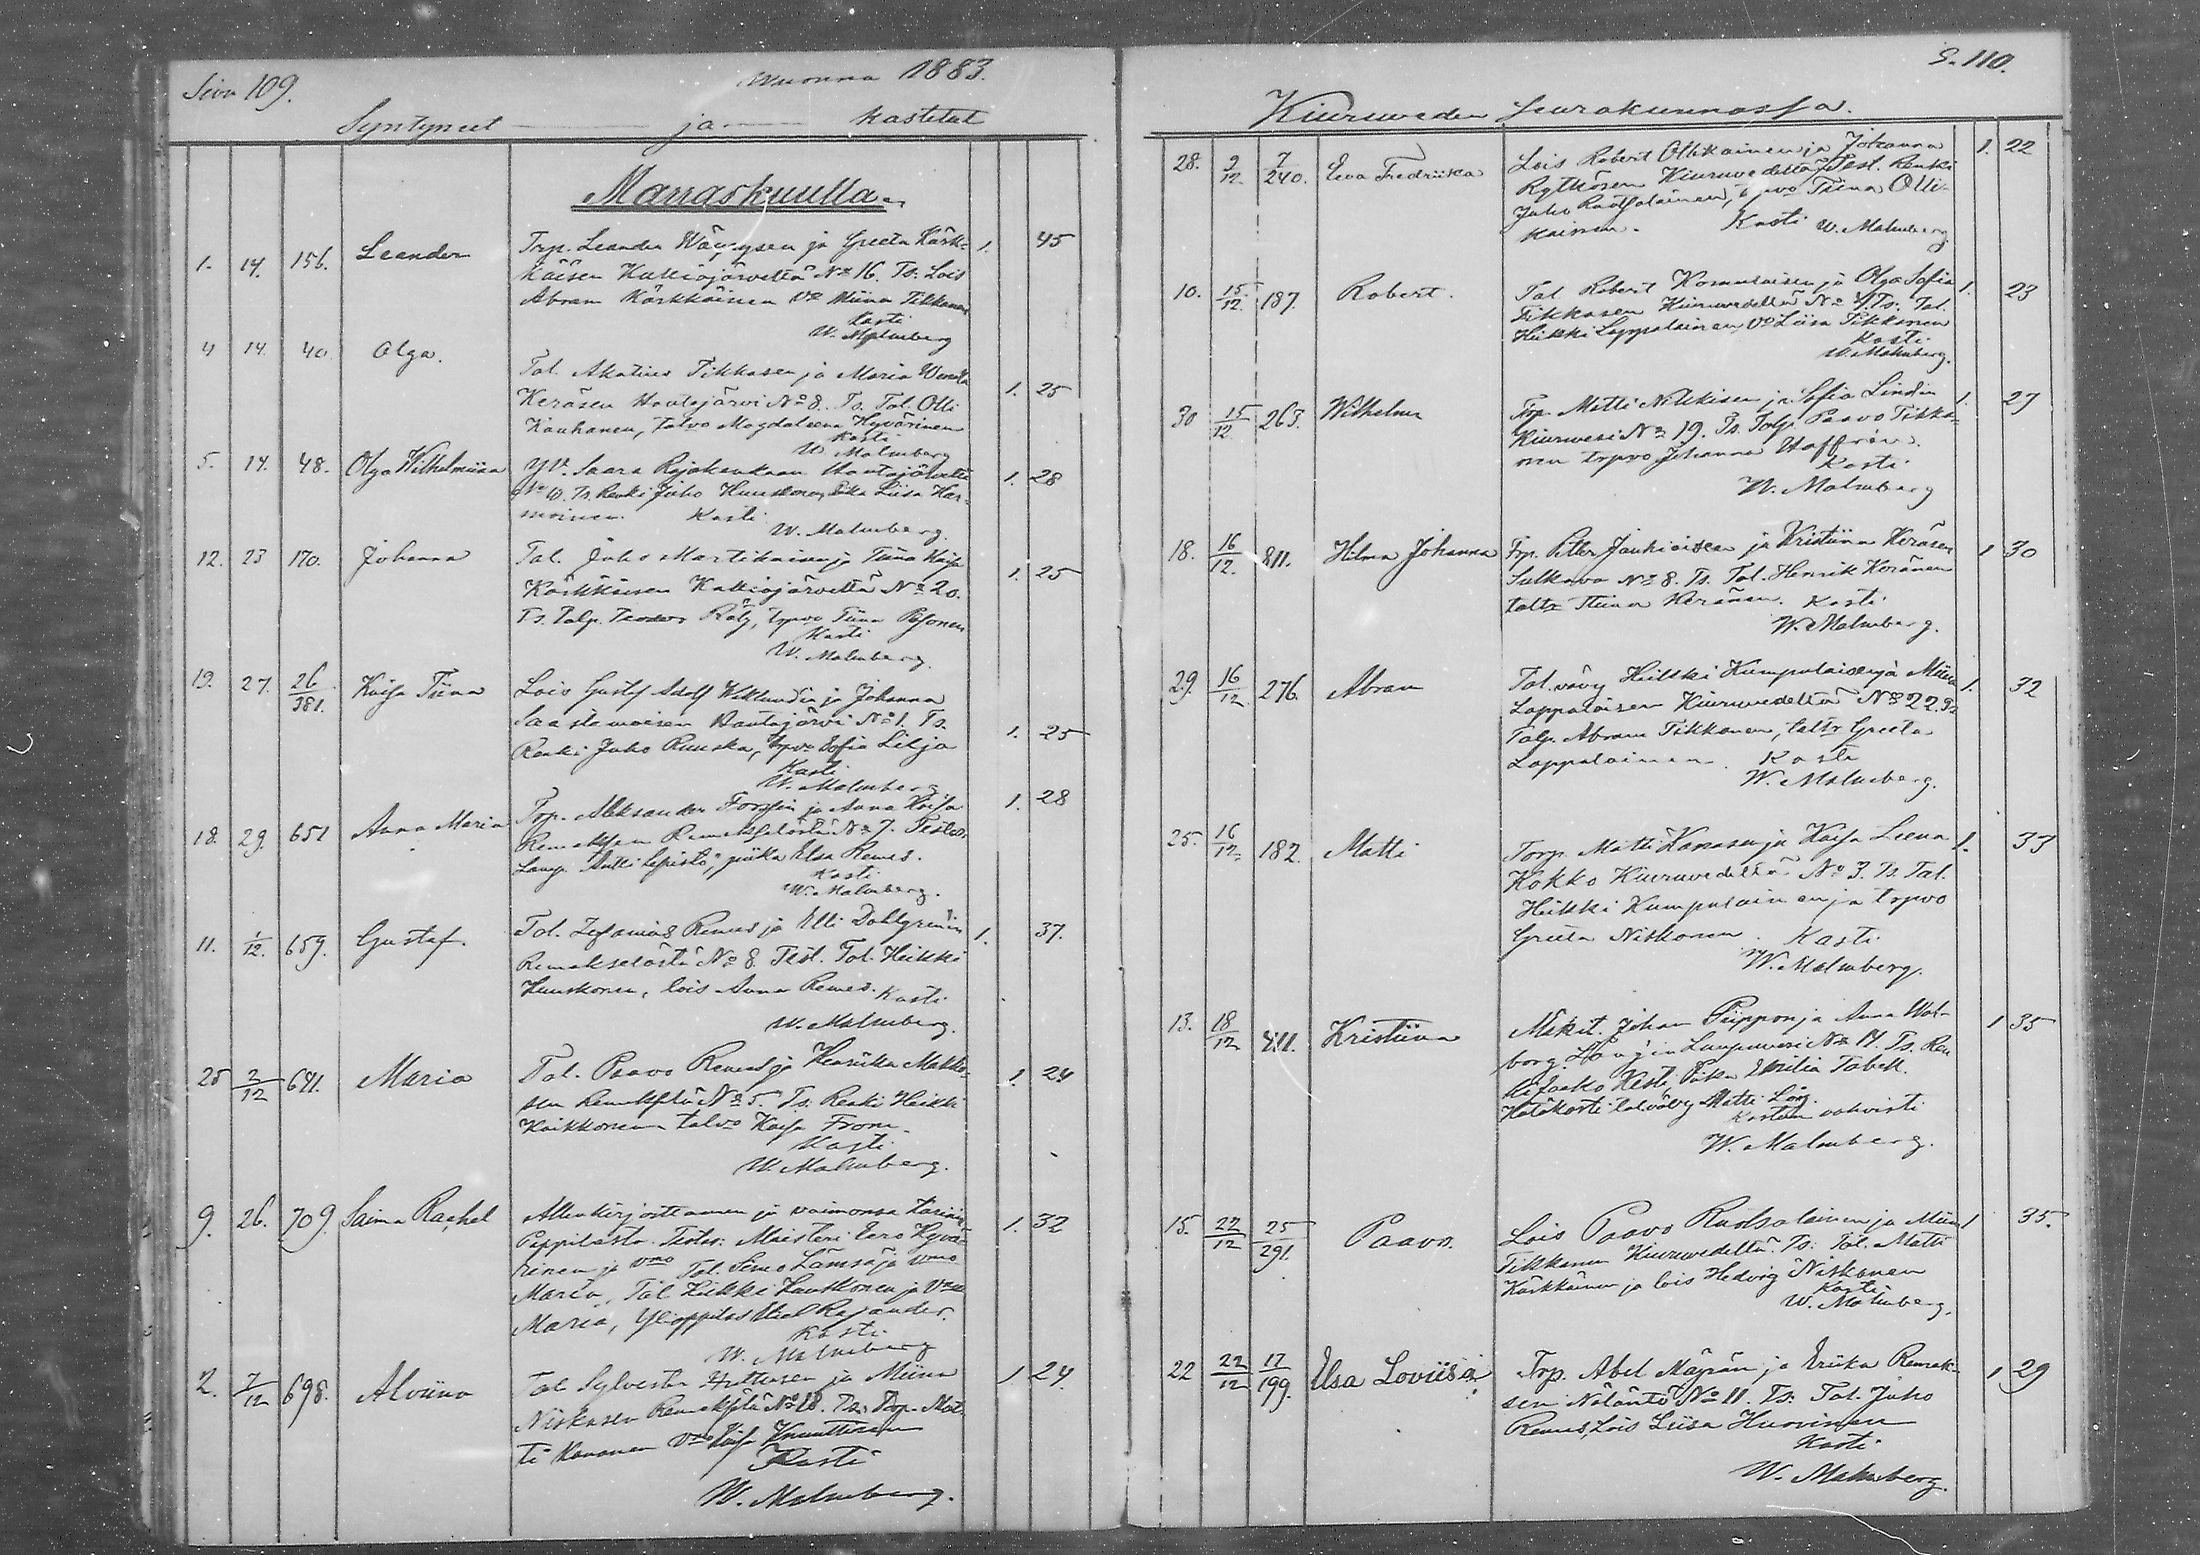 Sivu 109.
Wuonna 1883.
Syntyneet ja kastetut
Marraskuulla.
1. 14. 156. Leander
Trp. Leander Wäyrysen ja Greeta Kärk-
käisen Kalliojärveltä No 16. Ts: Lois
Abram Kärkkäinen Vo Miina Tikkanen
Kasti
W. Malmberg
1. 45
4 14. 40. Olga.
Tal. Akatius Tikkasen ja Maria
Keräsen Hautajärvi No 8. Ts. Tal. Olli
Kauhanen, talvo Magdaleena Hyvärinen
Kasti
W. Malmberg
1. 25
5. 14. 48. Olga Wilhelmiina
Saara
No 10. Ts. Renki Juho Huuskonen, piika Liisa Har-
moinen. Kasti
W. Malmberg.
1. 28
12. 23 170. Johanna
Tal. Juho Martikainen ja Tiina Kaisa
Kärkkäisen Kalliojärveltä No 20.
Ts. Talp. Räty, trpvo Tiina
Kasti
W. Malmberg.
1. 25
19. 27. 26/381. Kaisa Tiina
Lois Gustaf Adolf Wiklundin ja Johanna
Saastamoisen Hautajärvi No 1. Ts.
Renki Juho Ruuska, trpvo Sofia Lilja
Kasti
W. Malmberg.
1. 25
18. 29. 651 Anna Maria
Trp. Aleksander Forssin ja Anna Kaisa
Remeksen Remekselästä No 7. Test.
Lamp. Antti Lepistö, piika Elsa Remes.
Kasti
W. Malmberg.
1. 28
11. 1/12. 659. Gustaf.
Tal. Zefanias Remes ja Elli Dahlgrenin
Remekselästä No 8. Test. Tal. Heikki
Huuskonen, lois Anna Remes. Kasti
W. Malmberg.
1. 37.
25 2/12 641. Maria
Tal. Paavo Remes ja Henriika Makko-
sen No 5. Ts. Renki Heikki
Kaikkonen talvo Kaisa From.
Kasti
W. Malmberg.
1. 24
9. 26. 709. Saima Rachel
Allekirjoittaneen ja vaimonsa Karin
Pappilasta. Testes: Maisteri Eero Hyvä-
rinen ja Vmo Tal. Simo Lämsä ja Vmo
Maria, Tal. Heikki Huuskonen ja Vmo
Maria, Ylioppilas
Kasti
W. Malmberg
1. 32
2. 7/12 698. Alviina
Tal Sylvester Huttusen ja Miina
Niskasen No 18. Ts: Trp. Mat-
ti Kananen Vmo Kaisa Knuuttinen
Kasti
W. Malmberg.
1 24.
S. 110.
Kiuruweden Seurakunnassa.
28. 9/12. 7/240. Eeva Fredriika
Lois Robert Ollikainen ja Johanna
Rytkösen Kiuruvedeltä Test. Renki
Juho Ruotsalainen, Tiina Olli-
kainen. Kasti W. Malmberg.
1. 22
10. 15/12. 187. Robert.
Tal Robert Kommulaisen ja Olga Sofia
Tikkasen Kiuruvedeltä No 4 Ts: Tal.
Heikki Lappalainen, Vo Liisa Tikkanen
Kasti
W. Malmberg.
1. 23
30 15/12. 263. Wilhelm
Trp. Matti Nikkisen ja Sofia Lindin
Kiuruvesi No 19. Ts. Talp. Paavo Tikka-
nen trpvo Johanna Hoffrén.
Kasti
W. Malmberg
1. 27
18. 16/12. 811. Hilma Johanna
Trp. Petter Jauhiaisen ja Kristiina Keräsen
Sulkava No 8. Ts. Tal. Henrik Keränen
taltr Tiina Keränen. Kasti
W. Malmberg.
1 30
29. 16/12 276. Abram
Tal. vävy Heikki Kumpulaisen ja Miina
Lappalaisen Kiuruvedeltä No 22. Ts
Talp. Abram Tikkanen, taltr Greeta
Lappalainen. Kasti
W. Malmberg.
1. 32
25. 16/12 182. Matti
Torp. Matti Kanasen ja Kaisa Leena
Kokko Kiuruvedeltä No 3. Ts. Tal.
Heikki Kumpulainen ja trpvo
Greeta Niskanen. Kasti
W. Malmberg.
1. 33
13. 18/12 411. Kristiina
Mäkit. Johan Piippon ja Anna Wal-
borg Lång'in Lampuvesi No 14. Ts. Ren-
ki Jaako Kesti, Piika Emilia Tabell.
Hätäkasti talvävy Matti Lång.
Kasteen vahvisti
W. Malmberg.
1 35
15. 22/12 25/291. Paavo.
Lois Paavo Ruotsalainen ja Miina
Tikkanen Kiuruvedeltä. Ts: Tal. Matti
Kärkkäinen ja lois Hedvig Niskanen
Kasti
W. Malmberg.
1 35.
22 22/12 17/199. Elsa Loviisa
Trp. Abel Mäyrän ja Eriika Remek-
sen Niläntö No 11. Ts: Tal. Juho
Remes, Lois Liisa Huovinen
Kasti
W. Malmberg.
1 29